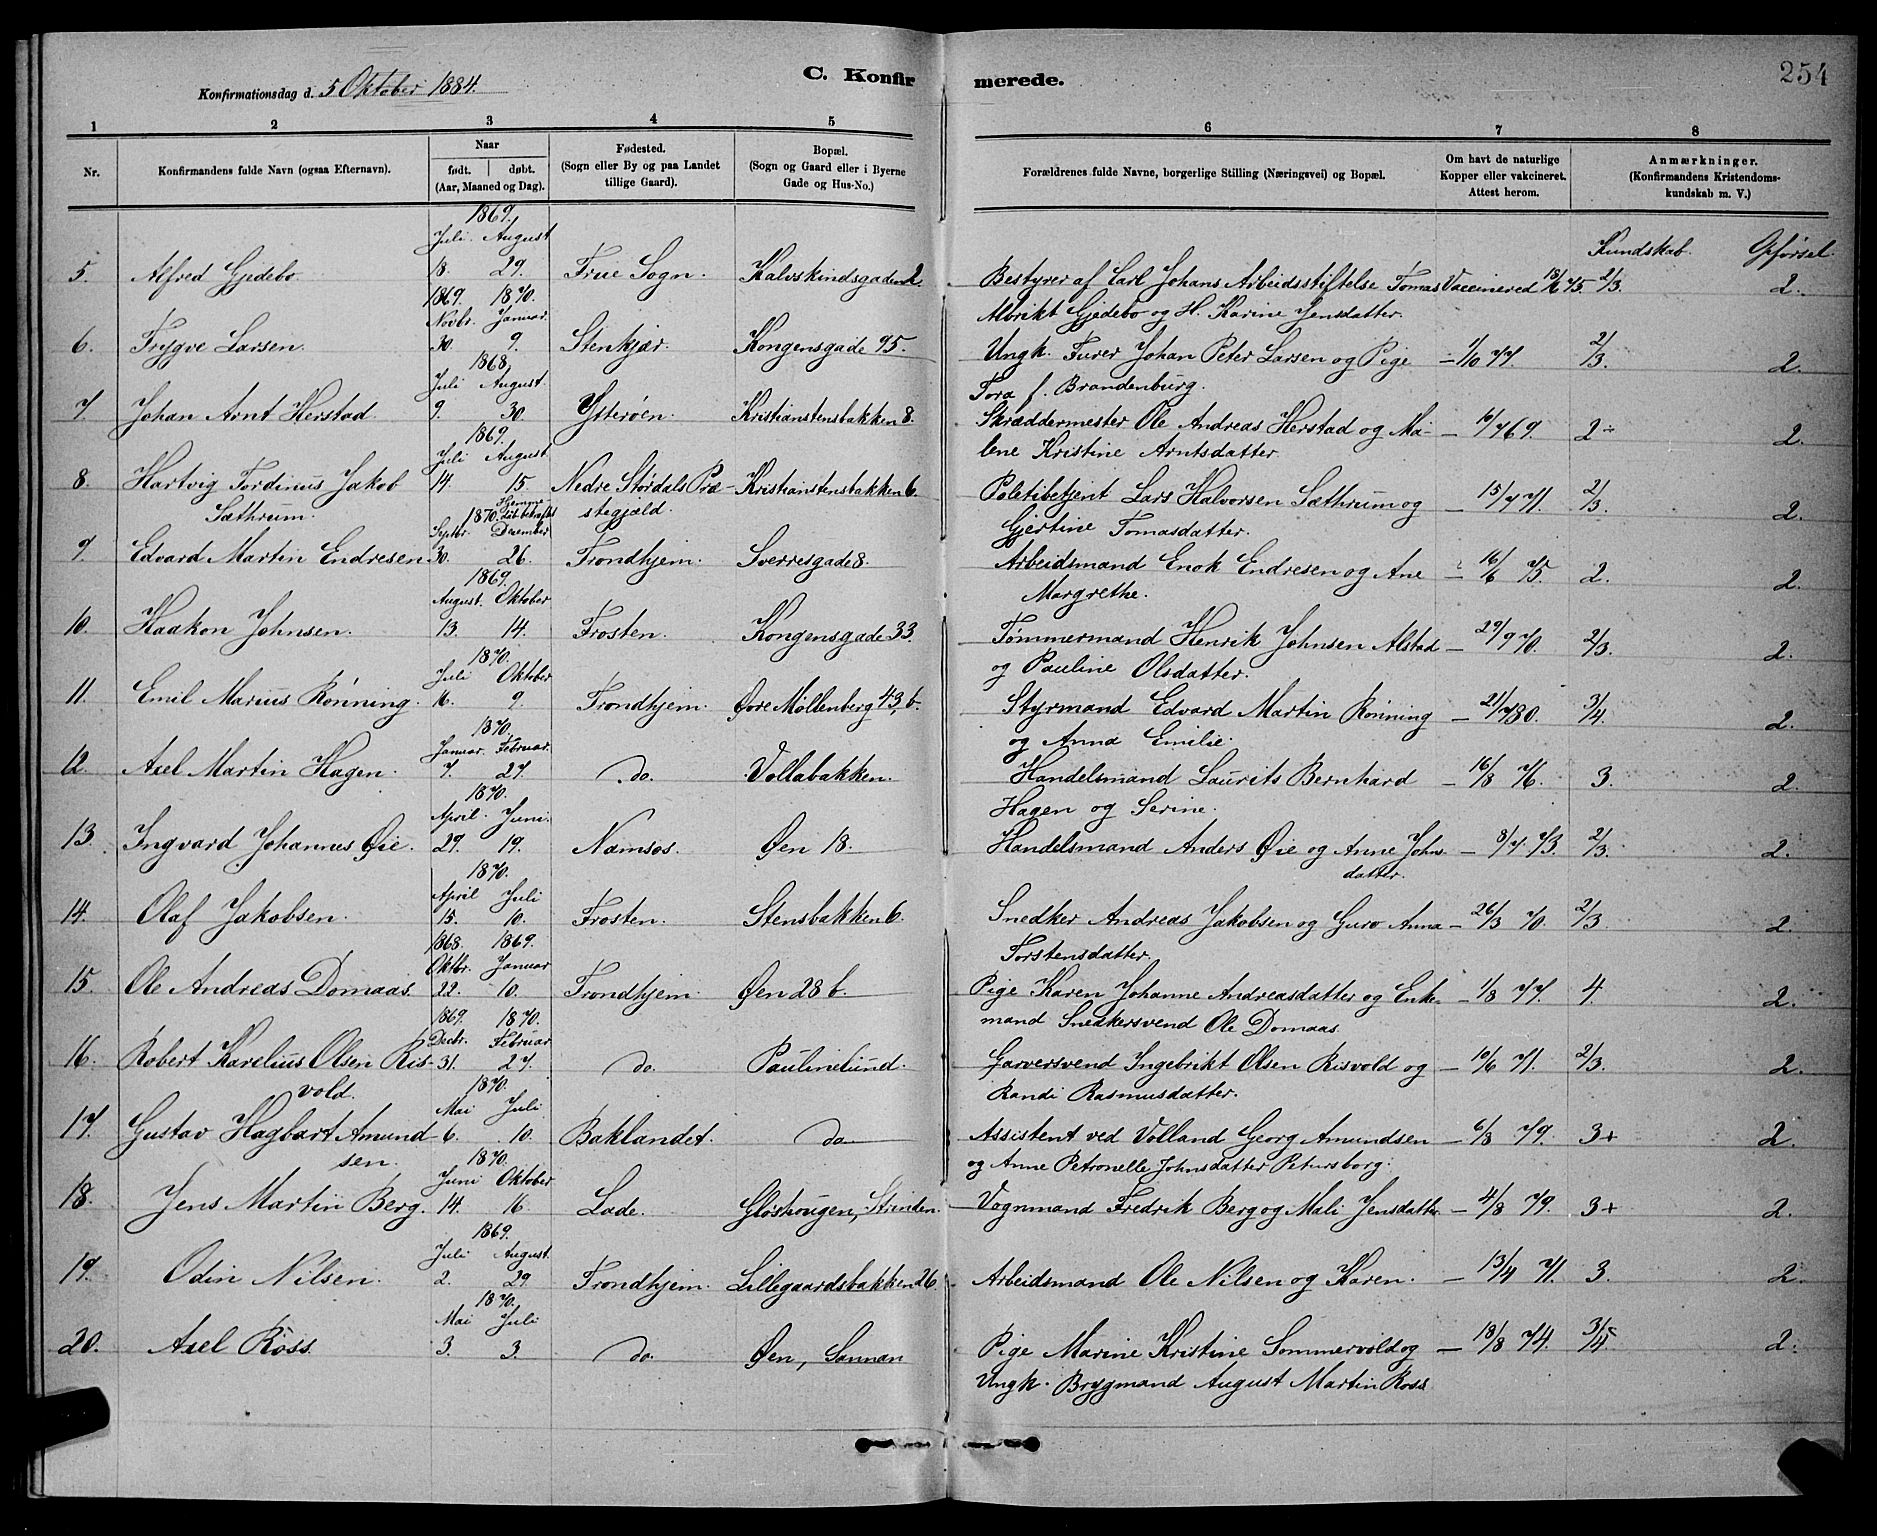 C. Konfirmerede.
254
Konfirmationsdag d. 5 Oktober 1884.
1 2 3 4 5 6 7 8
Nr.
Konfirmandens fulde Navn (ogsaa Efternavn).
Naar
født. døbt.
(Aar, Maaned og Dag).
Fødested.
(Sogn eller By og paa Landet
tillige Gaard).
Bopæl.
(Sogn og Gaard eller i Byerne
Gade og Hus-No.)
Forældrenes fulde Navne, borgerlige Stilling (Næringsvei) og Bopæl.
Om havt de naturlige
Kopper eller vakcineret.
Attest herom.
Anmærkninger.
(Konfirmandens Kristendoms-
kundskab m. V.)
Kundskab. Opførsel.
1869.
Juli. August
5. Alfred Gjedebo. 18. 29. Frue Sogn. Kalvskindsgaden 2. Bestyrer af Carl Johans Arbeidsstiftelse Tomas Vaccinered 18/6 75. 2/3. 2.
Albrikt Gjedebo og H. Karine Jensdatter.
1869. 1870.
Novbr. Januar.
6. Trygve Larsen. 30. 9. Stenkjær. Kongensgade 95. Ungk. Furer Johan Peter Larsen og Pige — 1/10 77. 2/3. 2.
Tora f. Brandenburg.
1868.
Juli August.
7. Johan Arnt Herstad. 9. 30. Ytterøen. Kristianstensbakken 8. Skræddermester Ole Andreas Herstad og Ma- — 10/7 69. 2÷ 2.
lene Kristine Arntsdatter.
1869.
Juli August.
8. Hartvig Tordinus Jakob 14. 15. Nedre Stördals Præ- Kristianstensbakken 6. Politibetjent Lars Halvorsen Sæthrum og — 15/7 71. 2/3. 2.
Sæthrum. stegjæld. Gjertine Tomasdatter.
1870.
Septbr. December
9. Edvard Martin Endresen 30. 26. Trondhjem. Sverresgade 8. Arbeidsmand Enok Endresen og Ane — 16/6 75. 2. 2.
Margrethe.
1869.
August. Oktober
10. Haakon Johnsen. 13. 14. Frosten. Kongensgade 33. Tømmermand Henrik Johnsen Alstad — 29/9 70. 2/3. 2.
og Pauline Olsdatter.
1870.
Juli Oktober
11. Emil Marius Rönning. 16. 9. Trondhjem. Øvre Möllenberg 43, b. Styrmand Edvard Martin Rönning — 21/7 80. 3/4. 2.
og Anna Emilie.
1870.
Januar. Februar.
12. Axel Martin Hagen. 7. 27. do. Vollabakken. Handelsmand Laurits Bernhard — 16/8 76. 3. 2.
Hagen og Serine.
1870.
April. Juni.
13. Ingvard Johannes Øie. 29. 19. Namsos. Øen 18. Handelsmand Anders Øie og Anne Johns- — 8/7. 73. 2/3. 2.
datter.
1870.
April Juli
14. Olaf Jakobsen. 15. 10. Frosten. Stensbakken 6. Snedker Andreas Jakobsen og Guro Anna — 26/3 70. 2/3. 2.
Torstensdatter.
1868. 1869.
Oktbr. Januar
15. Ole Andreas Domaas. 22. 10. Trondhjem. Øen 28 b. Pige Karen Johanne Andreasdatter og Enke- — 1/8 77. 4. 2.
mand Snedkersvend Ole Domaas.
1869. 1870.
Decbr. Februar
16. Robert Karelius Olsen Ris- 31. 27. do. Paulinelund. Garversvend Ingebrikt Olsen Risvold og — 10/6 71. 2/3. 2.
vold. Randi Rasmusdatter.
1870.
Mai Juli
17. Gustav Hagbart Amund- 6. 10. Baklandet. do. Assistent ved Volland Georg Amundsen — 6/8 79. 3+ 2.
sen. og Anne Petronelle Johnsdatter Petersborg.
1870.
Juni Oktober
18. Jens Martin Berg. 14. 16. Lade. Gløshougen, Strinden. Vognmand Fredrik Berg og Mali Jensdatter — 4/8 79. 3+ 2.
1869.
Juli August.
19. Odin Nilsen. 2. 29. Trondhjem. Lillegaardsbakken 26. Arbeidsmand Ole Nilsen og Karen. — 13/4 71. 3. 2.
1870.
Mai Juli
20. Axel Röss. 3. 3. do. Øen, Sannan Pige Marine Kristine Sommervold og — 18/8 74. 3/4. 2.
Ungk. Brygmand August Martin Ross.